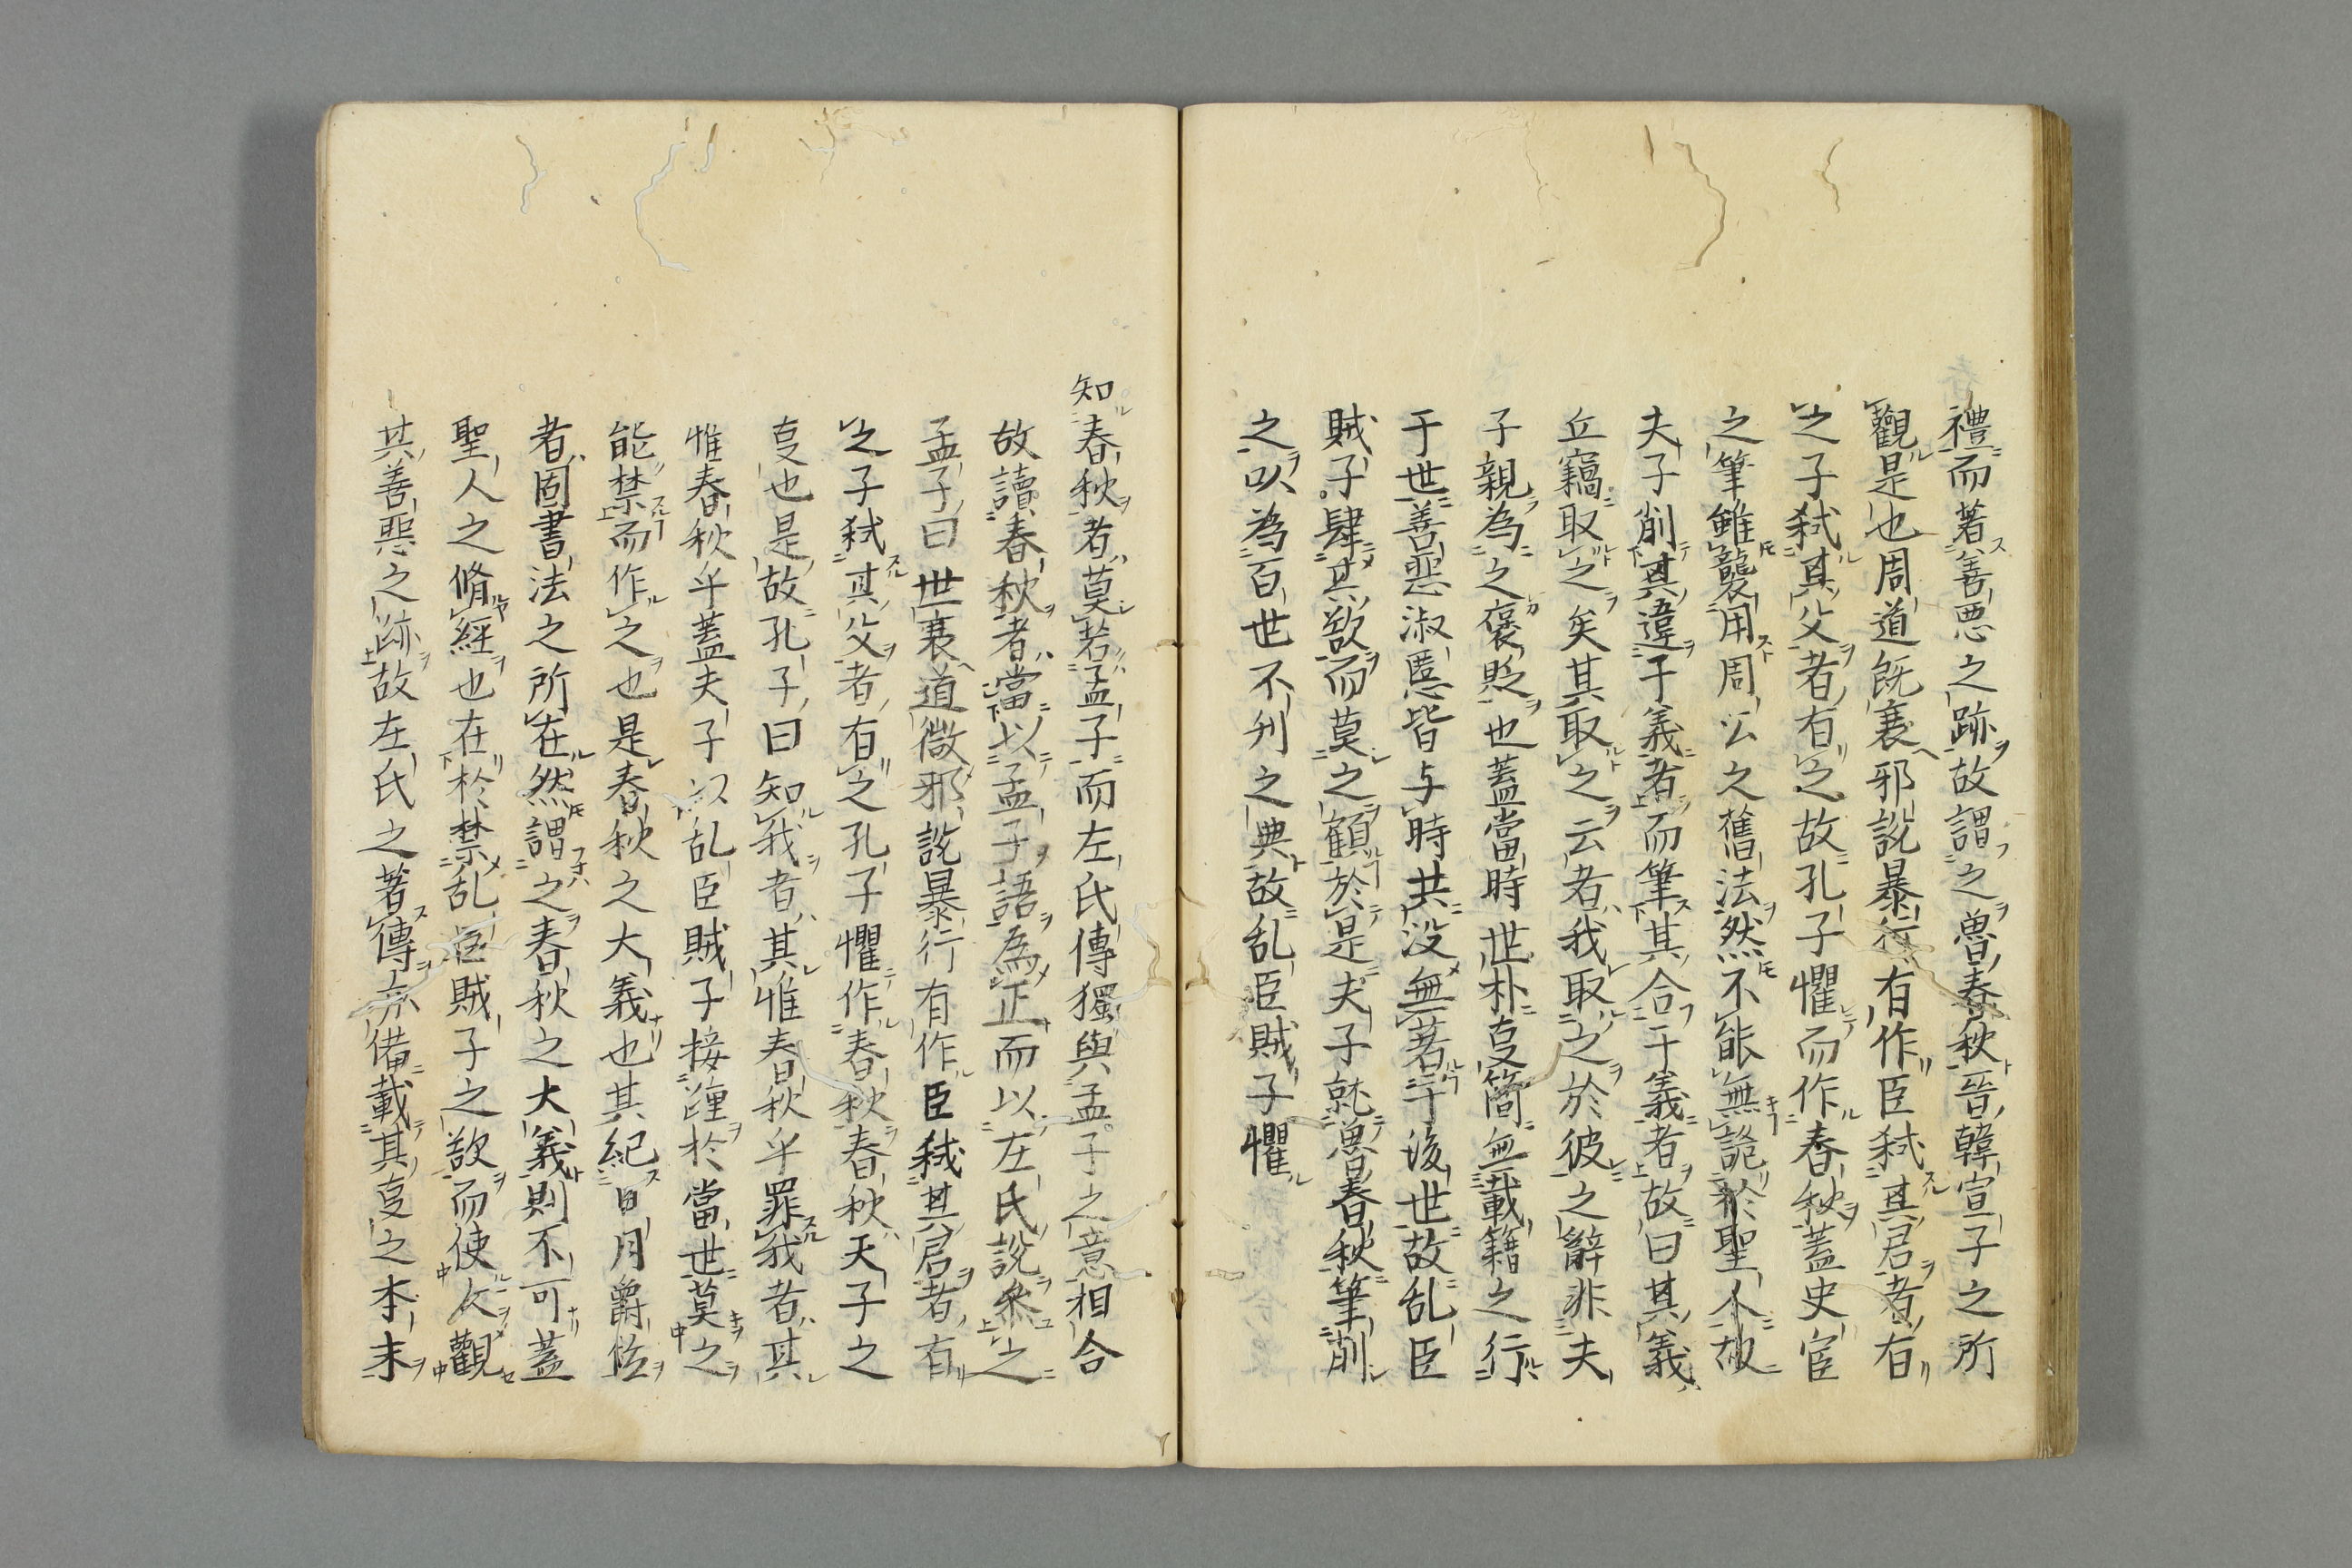 禮而著善悪之跡故謂之魯春秋晋韓宣子之所
觀是也周道既衰邪說暴行有作臣弑其君者有
之子弑其父者有之故孔子懼而作春秋蓋史官
之筆雖襲用周公之舊法然不能無詭於聖人故
夫子削其違于義者而筆其合于義者故曰其義
丘竊取之矣其取之云者我取之於彼之辭非夫
子親為之褒貶也蓋當時世朴㕝簡無載籍之行
于世善惡淑慝皆与時共没無著于後世故乱臣
賊子肆其欲而莫之顧於是夫子就魯春秋筆削
之以為百世不刋之典故乱臣賊子懼
知春秋者莫若孟子而左氏傳獨與孟子之意相合
故讀春秋者當以孟子語為正而以左氏說參之
孟子曰世衰道微邪說暴行有作臣弑其君者有
之子弑其父者有之孔子懼作春秋春秋天子之
㕝也是故孔子曰知我者其惟春秋乎罪我者其
惟春秋乎蓋夫子以乱臣賊子接踵於當世莫之
能禁而作之也是春秋之大義也其紀日月爵位
者固書法之所在然謂之春秋之大義則不可蓋
聖人之脩經也在於禁乱臣賊子之欲而使人觀
其善惡之跡故左氏之著傳亦備載其㕝之本末